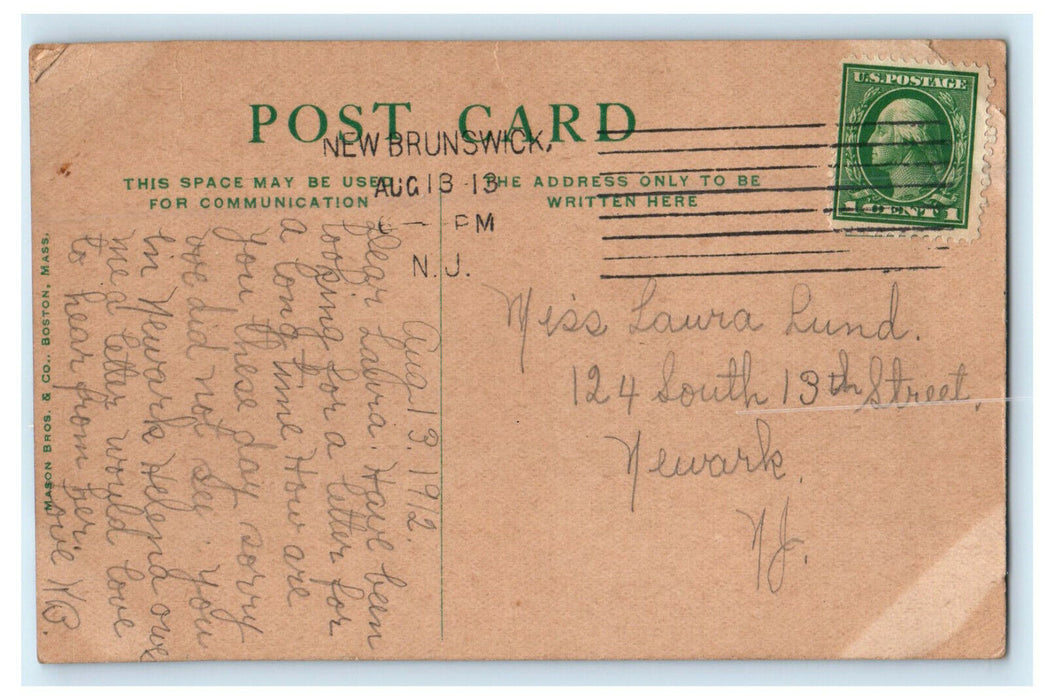 POST CARD
NEW BRUNSWICK,
AUG 13 13
PM
N. J.
THIS SPACE MAY BE USED
FOR COMMUNICATION
THE ADDRESS ONLY TO BE
WRITTEN HERE
U.S. POSTAGE
1 CENT 1
MASON BROS. & CO., BOSTON, MASS.
Aug. 13. 1912.
Dear Laura. Have been
looking for a letter for
a long time How are
you these day sorry
we did not see you
in Newark Helena owe
me a letter would love
to hear from her.
Love
Miss Laura Lund.
124 South 13th Street,
Newark.
N.J.